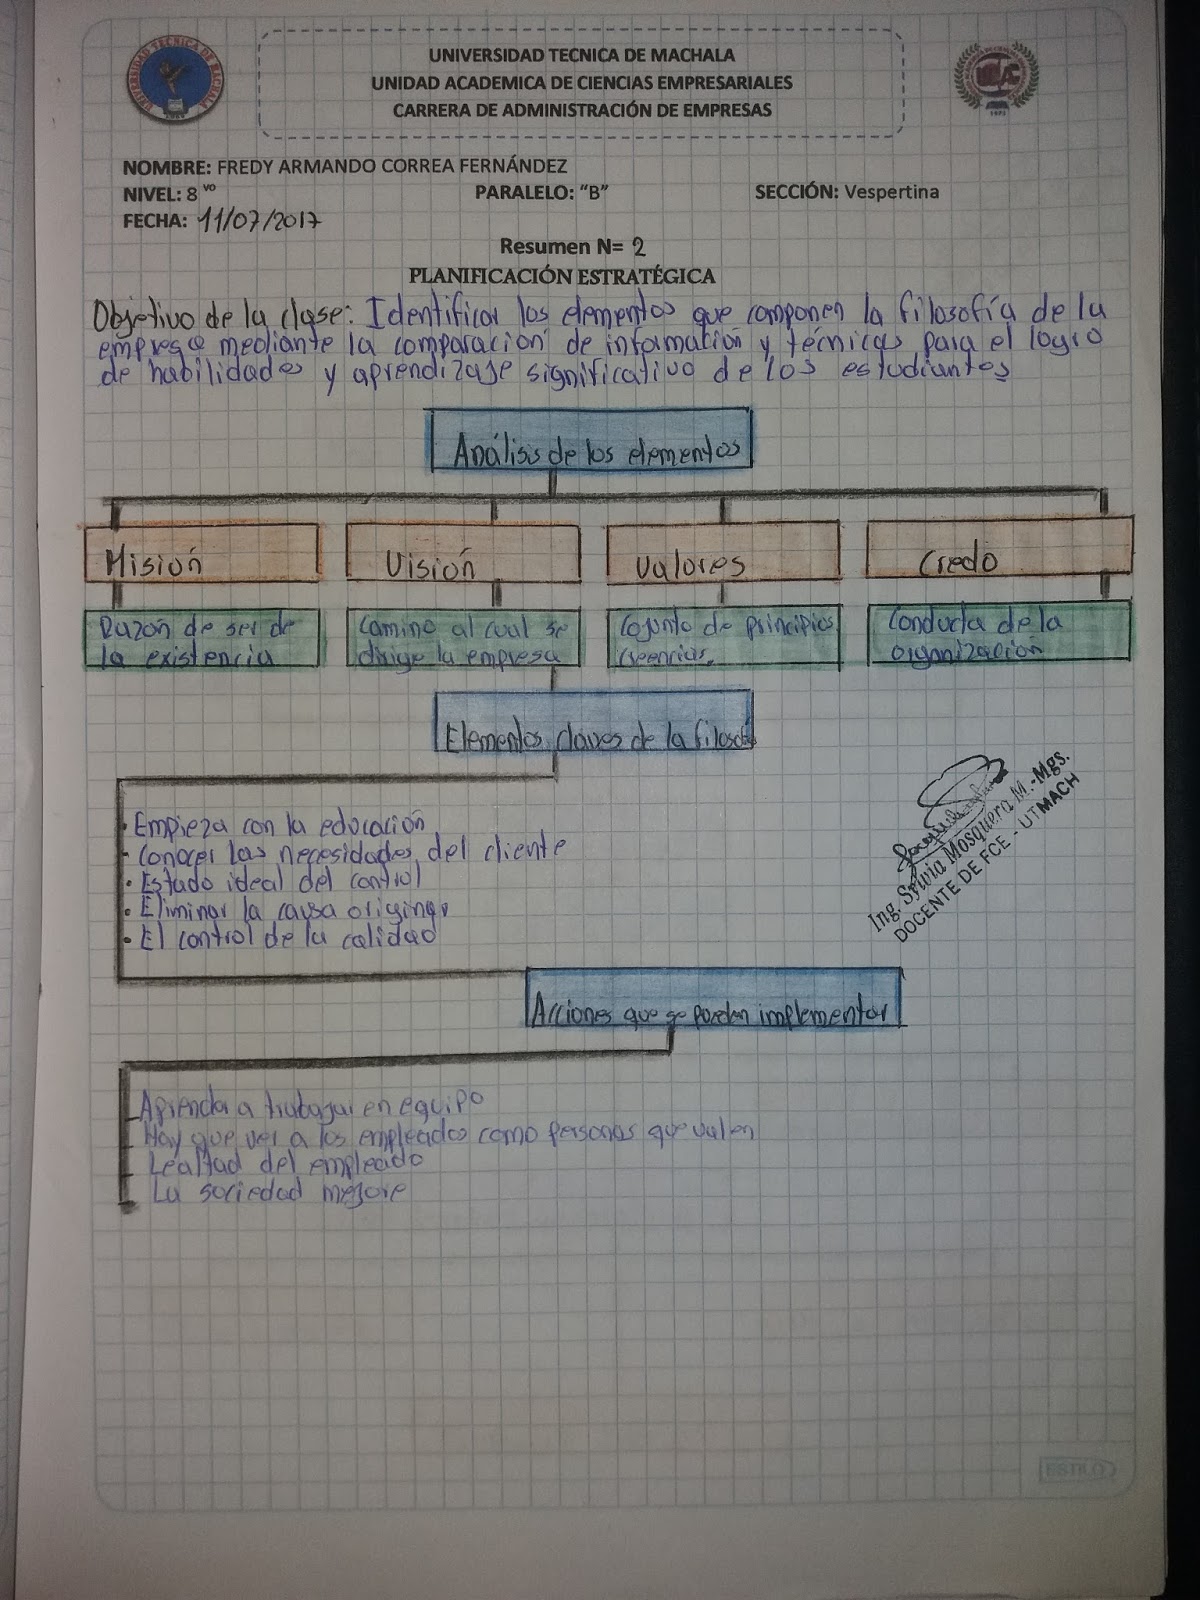 UNIVERSIDAD TECNICA DE MACHALA
UNIDAD ACADEMICA DE CIENCIAS EMPRESARIALES
CARRERA DE ADMINISTRACIÓN DE EMPRESAS
UNIVERSIDAD TECNICA DE MACHALA
NOMBRE: FREDY ARMANDO CORREA FERNÁNDEZ
NIVEL: 8 vo PARALELO: “B” SECCIÓN: Vespertina
FECHA: 11/07/2017
Resumen N= 2
PLANIFICACIÓN ESTRATÉGICA
Objetivo de la clase: Identificar los elementos que componen la filosofía de la
empresa mediante la comparación de información y técnicas para el logro
de habilidades y aprendizaje significativo de los estudiantes
Análisis de los elementos
Misión Visión Valores Credo
Razón de ser de
la existencia
Camino al cual se
dirige la empresa
Cojunto de principios
creencias.
Conducta de la
organización
Elementos claves de la filosof
· Empieza con la educación
· Conocer las necesidades del cliente
· Estado ideal del control
· Eliminar la causa
· El control de la calidad
Ing. Sylvia Mosquera M.-Mgs.
DOCENTE DE FCE - UTMACH
Acciones que se pueden implementar
Aprender a trabajar en equipo
Hay que ver a los empleados como personas que valen
Lealtad del empleado
La sociedad mejore
ESTILO